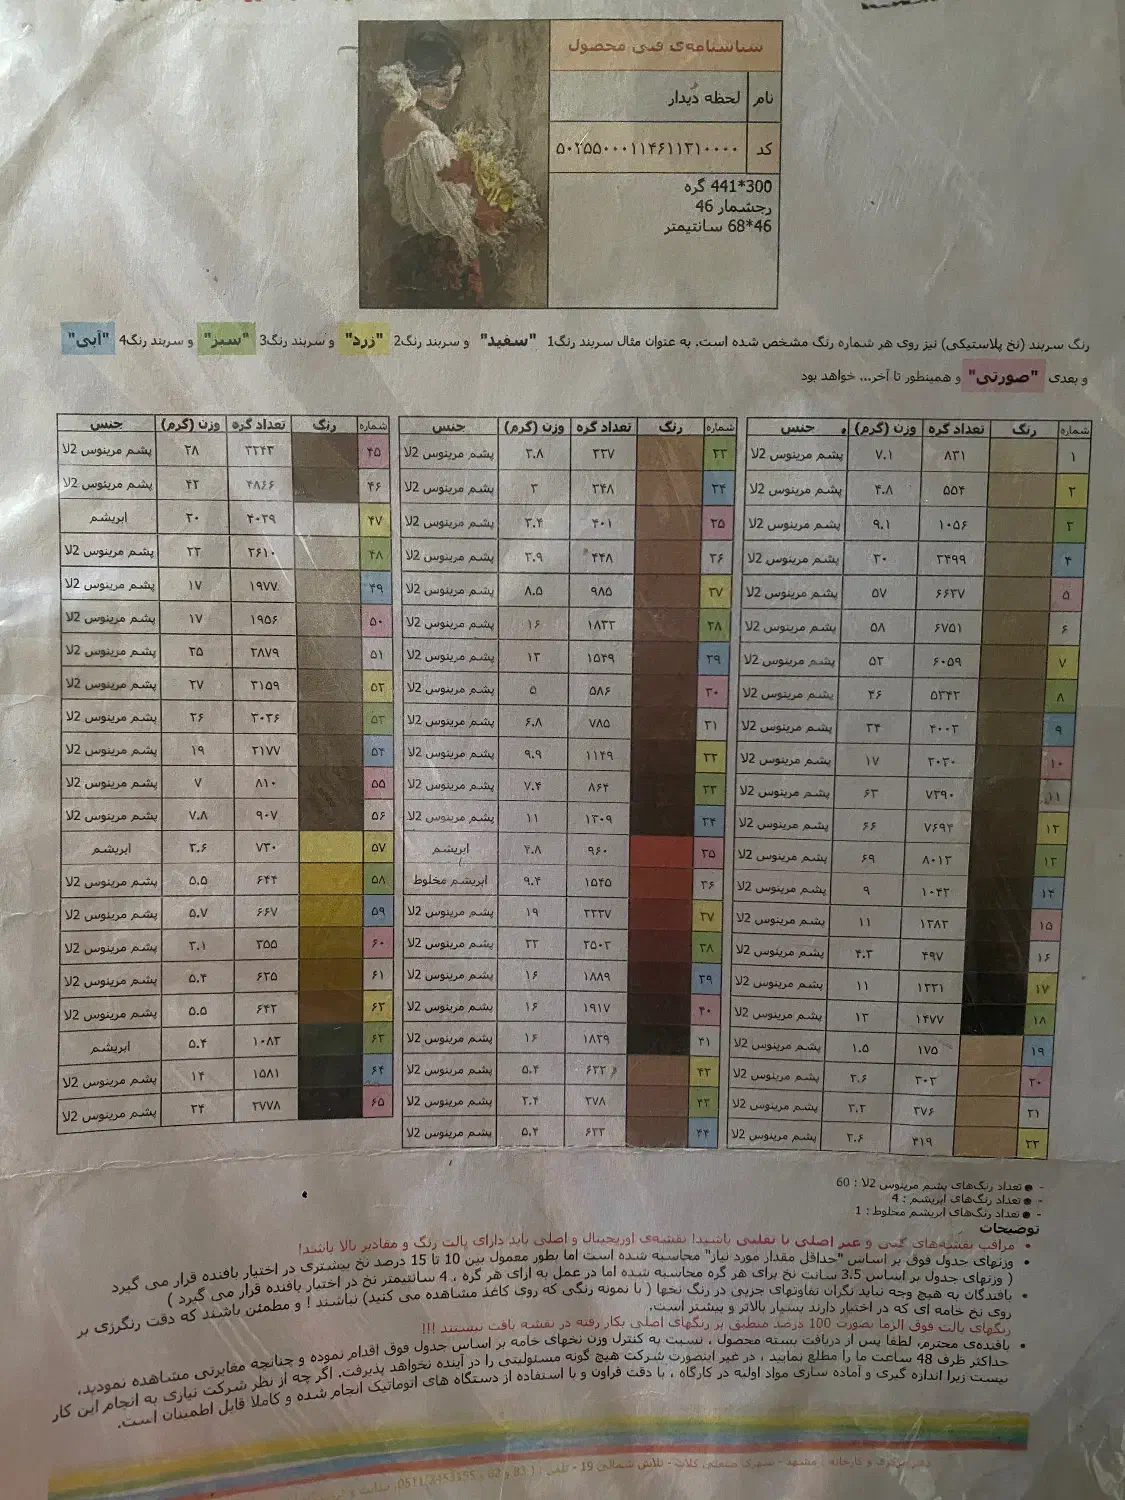 شناسنامه‌ی فنی محصول
نام لحظه دیدار
کد ۵۰۲۵۵۰۰۰۱۱۴۶۱۱۳۱۰۰۰۰
300*441 گره
رجشمار 46
46*68 سانتیمتر
رنگ سربند (نخ پلاستیکی) نیز روی هر شماره رنگ مشخص شده است. به عنوان مثال سربند رنگ1 "سفید" و سربند رنگ2 "زرد" و سربند رنگ3 "سبز" و سربند رنگ4 "آبی"
و بعدی "صورتی" و همینطور تا آخر... خواهد بود
شماره رنگ تعداد گره وزن (گرم) جنس
۱ ۸۳۱ ۷.۱ پشم مرینوس 2لا
۲ ۵۵۴ ۴.۸ پشم مرینوس 2لا
۳ ۱۰۵۶ ۹.۱ پشم مرینوس 2لا
۴ ۳۴۹۹ ۳۰ پشم مرینوس 2لا
۵ ۶۶۳۷ ۵۷ پشم مرینوس 2لا
۶ ۶۷۵۱ ۵۸ پشم مرینوس 2لا
۷ ۶۰۵۹ ۵۲ پشم مرینوس 2لا
۸ ۵۳۴۲ ۴۶ پشم مرینوس 2لا
۹ ۴۰۰۲ ۳۴ پشم مرینوس 2لا
۱۰ ۲۰۲۰ ۱۷ پشم مرینوس 2لا
۱۱ ۷۳۹۰ ۶۳ پشم مرینوس 2لا
۱۲ ۷۶۹۴ ۶۶ پشم مرینوس 2لا
۱۳ ۸۰۱۳ ۶۹ پشم مرینوس 2لا
۱۴ ۱۰۴۲ ۹ پشم مرینوس 2لا
۱۵ ۱۲۸۲ ۱۱ پشم مرینوس 2لا
۱۶ ۴۹۷ ۴.۳ پشم مرینوس 2لا
۱۷ ۱۲۳۱ ۱۱ پشم مرینوس 2لا
۱۸ ۱۴۷۷ ۱۳ پشم مرینوس 2لا
۱۹ ۱۷۵ ۱.۵ پشم مرینوس 2لا
۲۰ ۳۰۲ ۲.۶ پشم مرینوس 2لا
۲۱ ۳۷۶ ۳.۲ پشم مرینوس 2لا
۲۲ ۴۱۹ ۳.۶ پشم مرینوس 2لا
شماره رنگ تعداد گره وزن (گرم) جنس
۲۳ ۳۲۷ ۲.۸ پشم مرینوس 2لا
۲۴ ۳۴۸ ۳ پشم مرینوس 2لا
۲۵ ۴۰۱ ۳.۴ پشم مرینوس 2لا
۲۶ ۴۴۸ ۳.۹ پشم مرینوس 2لا
۲۷ ۹۸۵ ۸.۵ پشم مرینوس 2لا
۲۸ ۱۸۳۲ ۱۶ پشم مرینوس 2لا
۲۹ ۱۵۴۹ ۱۳ پشم مرینوس 2لا
۳۰ ۵۸۶ ۵ پشم مرینوس 2لا
۳۱ ۷۸۵ ۶.۸ پشم مرینوس 2لا
۳۲ ۱۱۴۹ ۹.۹ پشم مرینوس 2لا
۳۳ ۸۶۴ ۷.۴ پشم مرینوس 2لا
۳۴ ۱۳۰۹ ۱۱ پشم مرینوس 2لا
۳۵ ۹۶۰ ۴.۸ ابریشم
۳۶ ۱۵۴۵ ۹.۴ ابریشم مخلوط
۳۷ ۲۲۳۷ ۱۹ پشم مرینوس 2لا
۳۸ ۲۵۰۲ ۲۲ پشم مرینوس 2لا
۳۹ ۱۸۸۹ ۱۶ پشم مرینوس 2لا
۴۰ ۱۹۱۷ ۱۶ پشم مرینوس 2لا
۴۱ ۱۸۲۹ ۱۶ پشم مرینوس 2لا
۴۲ ۶۳۲ ۵.۴ پشم مرینوس 2لا
۴۳ ۲۷۸ ۲.۴ پشم مرینوس 2لا
۴۴ ۶۳۳ ۵.۴ پشم مرینوس 2لا
شماره رنگ تعداد گره وزن (گرم) جنس
۴۵ ۳۲۴۳ ۲۸ پشم مرینوس 2لا
۴۶ ۴۸۶۶ ۴۲ پشم مرینوس 2لا
۴۷ ۴۰۲۹ ۲۰ ابریشم
۴۸ ۲۶۱۰ ۲۲ پشم مرینوس 2لا
۴۹ ۱۹۷۷ ۱۷ پشم مرینوس 2لا
۵۰ ۱۹۵۶ ۱۷ پشم مرینوس 2لا
۵۱ ۲۸۷۹ ۲۵ پشم مرینوس 2لا
۵۲ ۳۱۵۹ ۲۷ پشم مرینوس 2لا
۵۳ ۳۰۲۶ ۲۶ پشم مرینوس 2لا
۵۴ ۲۱۷۷ ۱۹ پشم مرینوس 2لا
۵۵ ۸۱۰ ۷ پشم مرینوس 2لا
۵۶ ۹۰۷ ۷.۸ پشم مرینوس 2لا
۵۷ ۷۲۰ ۳.۶ ابریشم
۵۸ ۶۴۴ ۵.۵ پشم مرینوس 2لا
۵۹ ۶۶۷ ۵.۷ پشم مرینوس 2لا
۶۰ ۳۵۵ ۳.۱ پشم مرینوس 2لا
۶۱ ۶۲۵ ۵.۴ پشم مرینوس 2لا
۶۲ ۶۴۲ ۵.۵ پشم مرینوس 2لا
۶۳ ۱۰۸۲ ۵.۴ ابریشم
۶۴ ۱۵۸۱ ۱۴ پشم مرینوس 2لا
۶۵ ۲۷۷۸ ۲۴ پشم مرینوس 2لا
- ● تعداد رنگ‌های پشم مرینوس 2لا : 60
- ● تعداد رنگ‌های ابریشم : 4
- ● تعداد رنگ‌های ابریشم مخلوط : 1
توضیحات
• مراقب نقشه‌های کپی و غیر اصلی یا تقلبی باشید! نقشه‌ی اوریجینال و اصلی باید دارای پالت رنگ و مقادیر بالا باشند!
• وزنهای جدول فوق بر اساس "حداقل مقدار مورد نیاز" محاسبه شده است اما بطور معمول بین 10 تا 15 درصد نخ بیشتری در اختیار بافنده قرار می گیرد
( وزنهای جدول بر اساس 3.5 سانت نخ برای هر گره محاسبه شده اما در عمل به ازای هر گره ، 4 سانتیمتر نخ در اختیار بافنده قرار می گیرد )
• بافندگان به هیچ وجه نباید نگران تفاوتهای جزیی در رنگ نخها ( با نمونه رنگی که روی کاغذ مشاهده می کنید) نباشند ! و مطمئن باشند که دقت رنگرزی بر
روی نخ خامه ای که در اختیار دارند بسیار بالاتر و بیشتر است.
رنگهای پالت فوق الزما بصورت 100 درصد منطبق بر رنگهای اصلی بکار رفته در نقشه بافت نیستند !!!
• بافنده‌ی محترم، لطفا پس از دریافت بسته محصول ، نسبت به کنترل وزن نخهای خامه بر اساس جدول فوق اقدام نموده و چنانچه مغایرتی مشاهده نمودید،
حداکثر ظرف 48 ساعت ما را مطلع نمایید ، در غیر اینصورت شرکت هیچ گونه مسئولیتی را در آینده نخواهد پذیرفت. اگر چه از نظر شرکت نیازی به انجام این کار
نیست زیرا اندازه گیری و آماده سازی مواد اولیه در کارگاه ، با دقت فراوان و با استفاده از دستگاه های اتوماتیک انجام شده و کاملا قابل اطمینان است.
دفتر مرکزی و کارخانه : مشهد - شهرک صنعتی کلات - تلاش شمالی 19 - تلفن :